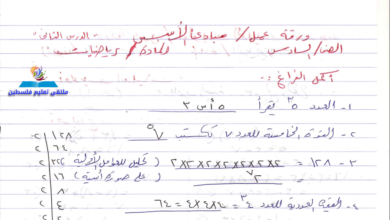 ورقة عمل / مبادئ الأسس الدرس الثاني
الصف / السادس المادة / رياضيات
ملتقى تعليم فلسطين
أكمل الفراغ :
١- العدد ٥^٣ يقرأ ٥ أس ٣
٢- القوة الخامسة للعدد ٧ تكتب ٧^٥
٣- ١٢٨ = ٢×٢×٢×٢×٢×٢×٢ (تحليل للعوامل الأولية)
٢^٧ (على صورة أسية)
٤- القيمة العددية للعدد ٤^٣ = ٤×٤×٤ = ٦٤
١٢٨ ٢
٦٤ ٢
٣٢ ٢
١٦ ٢
٨ ٢
٤ ٢